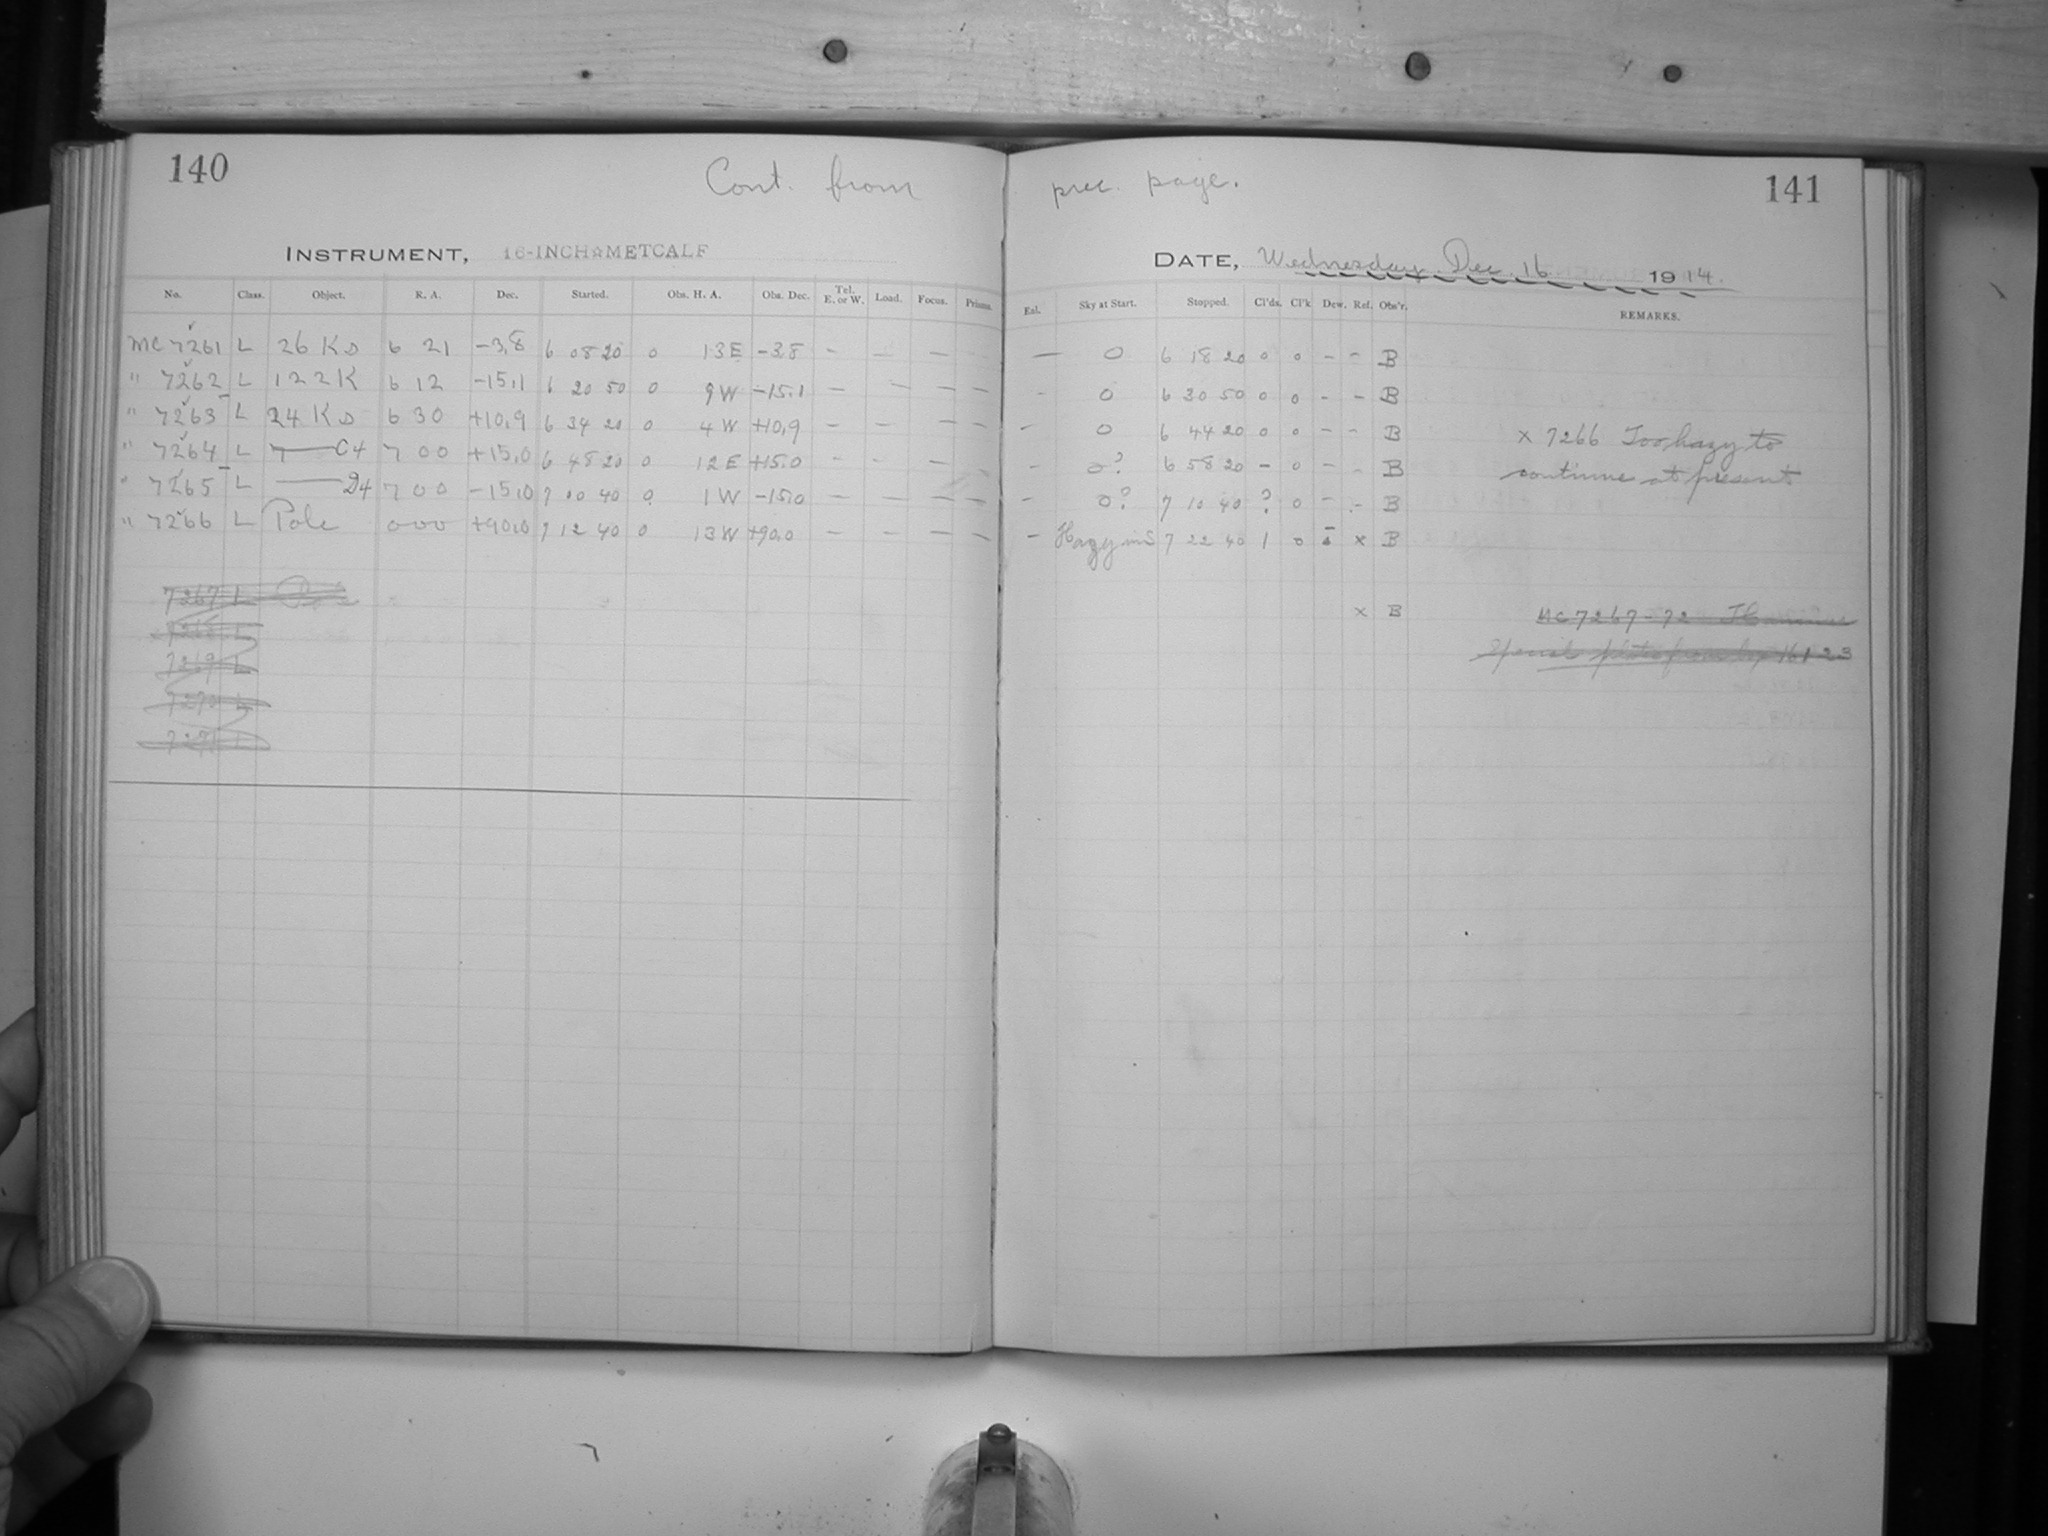 140
Cont. from prec. page.
141
INSTRUMENT, 16-INCH☆METCALF
DATE, Wednesday, Dec. 16 1914.
No. Class. Object. R. A. Dec. Started. Obs. H. A. Obs. Dec. Tel. E. or W. Load. Focus. Prisms. Exl. Sky at Start. Stopped. Cl'ds. Cl'k Dew. Ref. Obs'r. REMARKS.
MC 7261 L 26 KD 6 21 -3,8 6 08 20 0 13 E -3.8 - - - - - 0 6 18 20 0 0 - - B
" 7262 L 122K 6 12 -15,1 6 20 50 0 9 W -15.1 - - - - - 0 6 30 50 0 0 - - B
" 7263 L 24 KD 6 30 +10,9 6 34 20 0 4 W +10,9 - - - - - 0 6 44 20 0 0 - - B x 7266 Too hazy to
" 7264 L 7—C4 7 00 +15,0 6 48 20 0 12 E +15.0 - - - - - 0? 6 58 20 - 0 - - B continue at present
" 7265 L —D4 7 00 -15,0 7 00 40 0 1 W -15.0 - - - - - 0? 7 10 40 ? 0 - - B
" 7266 L Pole 000 +90,0 7 12 40 0 13 W +90.0 - - - - - Hazy 7 22 40 1 0 - x B
7267 L Pole x B MC 7267-72
7268 L Special plates from box 16123
7269 L
7270 L
7271 L